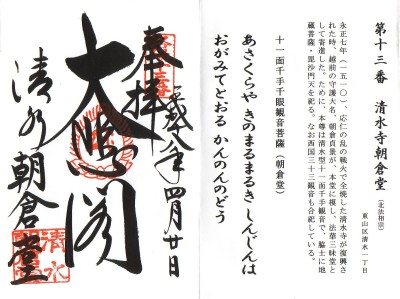 第十三番 清水寺朝倉堂（北法相宗）
東山区清水一丁目
永正七年（一五一〇）、応仁の乱の戦火で全焼した清水寺が復興さ
れた時、越前の守護大名、朝倉貞景が、本堂に模し、法華三昧堂と
して寄進した。ために、本尊は清水型十一面千手観音で、脇士に地
蔵菩薩・毘沙門天を祀る。なお西国三十三観音も合祀している。
十一面千手千眼観音菩薩（朝倉堂）
あさくらや きのまるまるき しんじんは
おがみてとおる かんのんのどう
平成十八年四月廿日
奉拝
大悲閣
清水朝倉堂